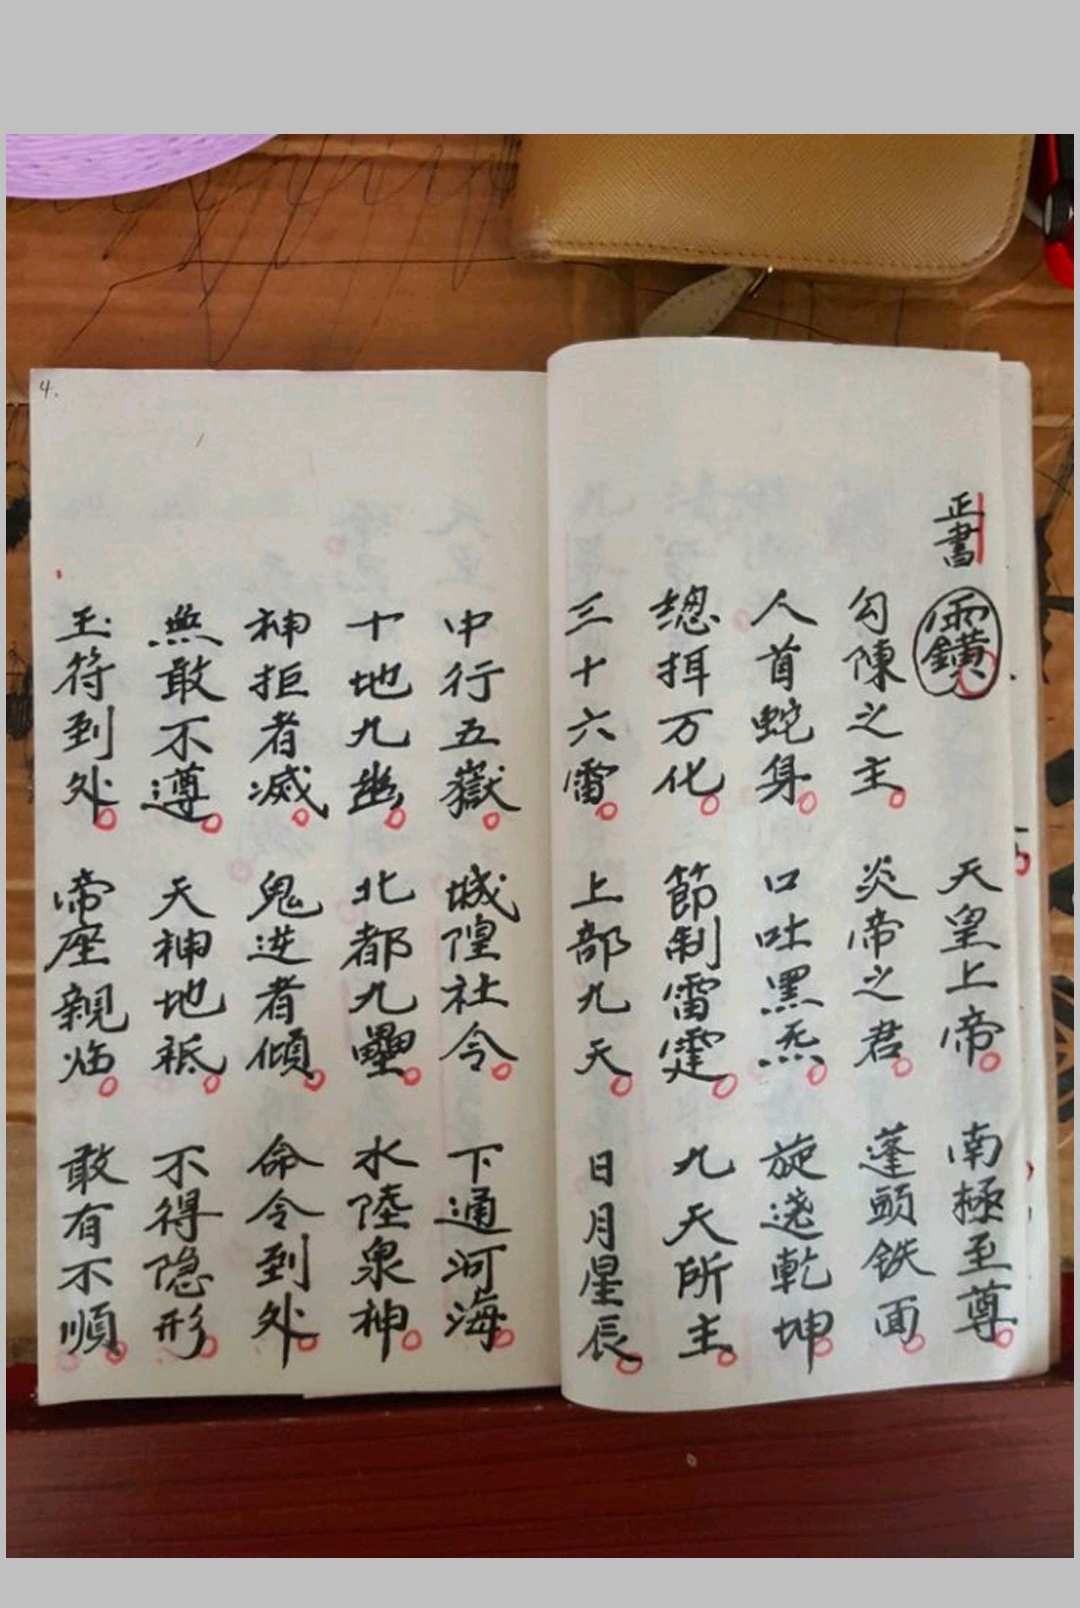 正書
天皇上帝 南極至尊
勾陳之主 炎帝之君 蓬頭鉄面
人首蛇身 口吐黑炁 旋遶乾坤
總揖万化 節制雷霆 九天所主
三十六雷 上部九天 日月星辰
中行五嶽 城隍社令 下通河海
十地九幽 北都九壘 水陸泉神
神拒者滅 鬼逆者傾 命令到处
無敢不遵 天神地祇 不得隐形
玉符到处 帝座親临 敢有不順
4.